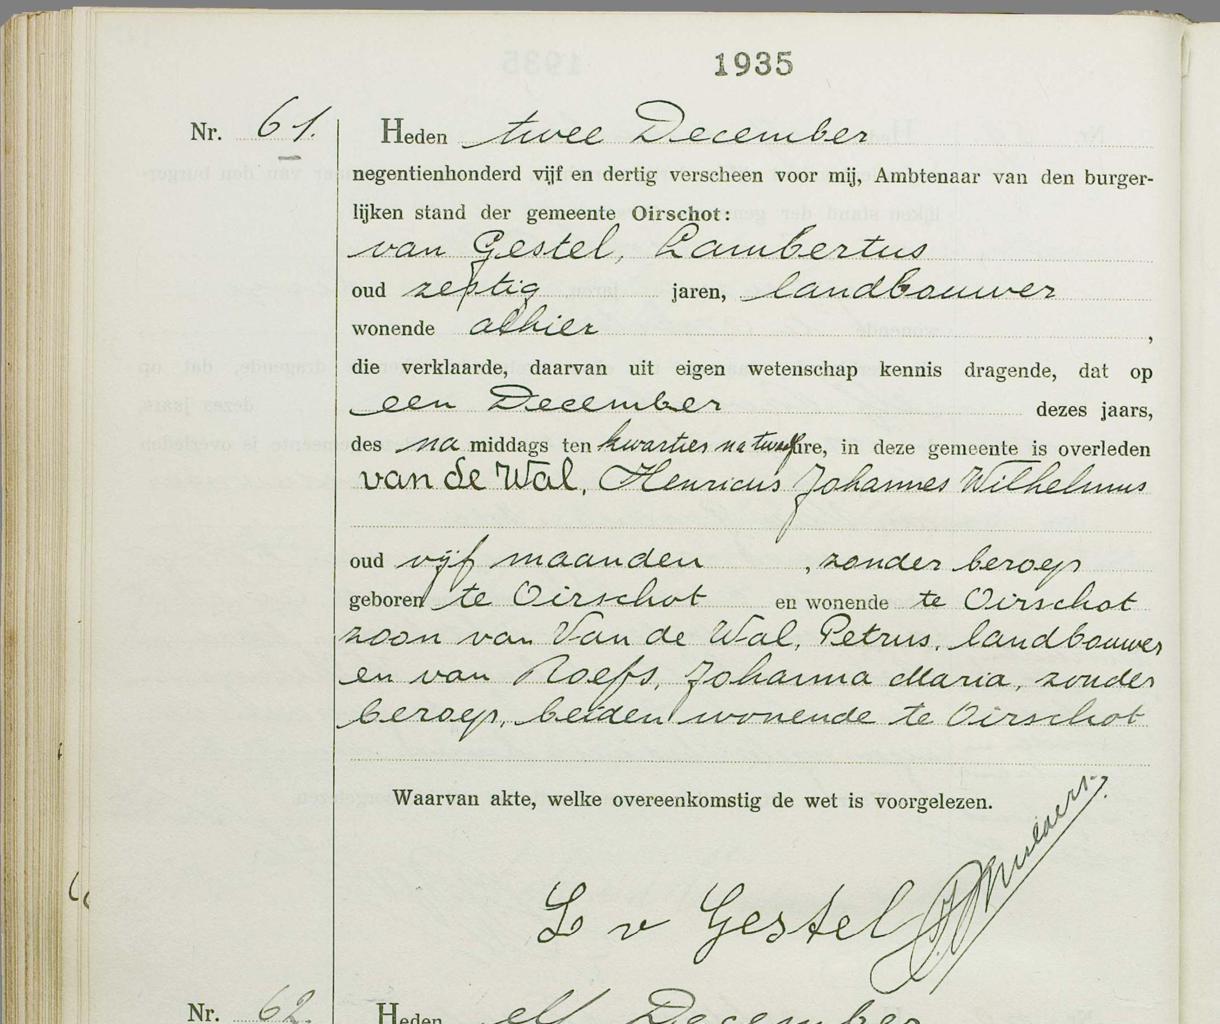 1935
Nr. 61.
Heden twee December
negentienhonderd vijf en dertig verscheen voor mij, Ambtenaar van den burger-
lijken stand der gemeente Oirschot:
van Gestel, Lambertus
oud zestig jaren, landbouwer
wonende alhier ,
die verklaarde, daarvan uit eigen wetenschap kennis dragende, dat op
een December dezes jaars,
des na middags ten kwartier na twee ure, in deze gemeente is overleden
van de Wal, Henricus Johannes Wilhelmus
oud vijf maanden , zonder beroep
geboren te Oirschot en wonende te Oirschot
zoon van Van de Wal, Petrus, landbouwer
en van Roefs, Johanna Maria, zonder
beroep, beiden wonende te Oirschot
Waarvan akte, welke overeenkomstig de wet is voorgelezen.
L v Gestel
Nr. 62.
Heden elf December